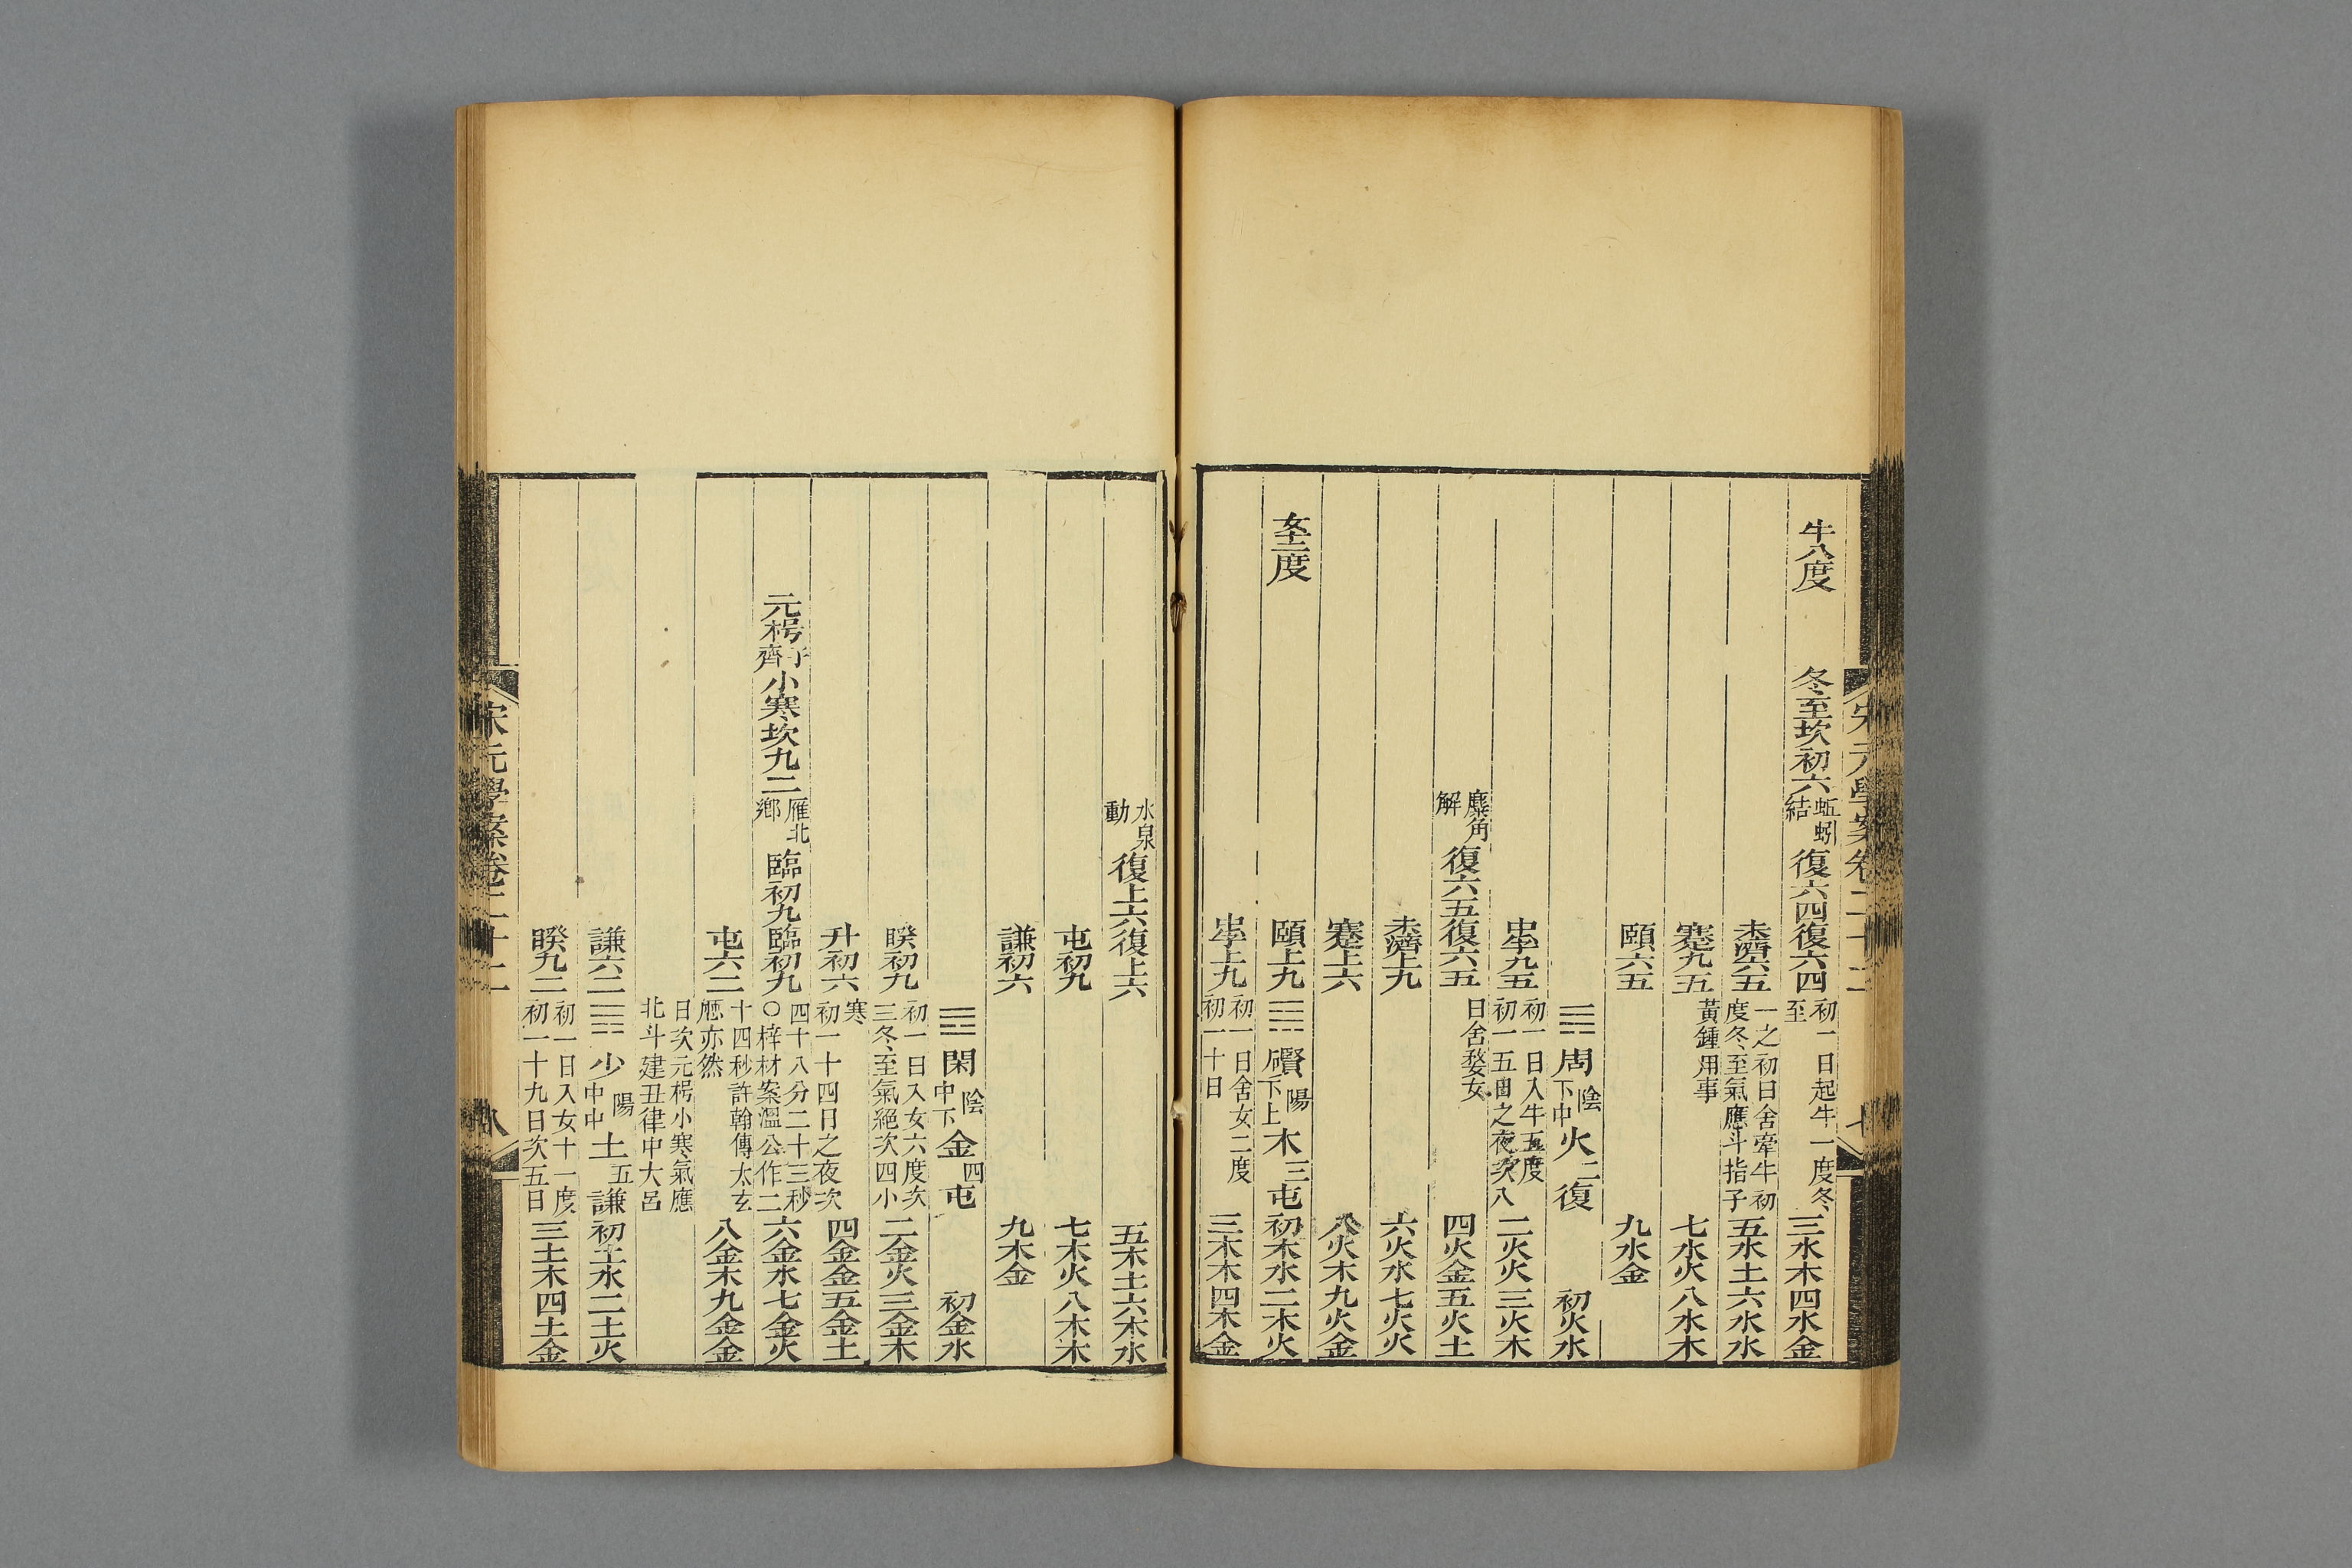 宋元學案卷二十二
七
牛八度 冬至坎初六 蚯蚓結 復六四復六四 初一日起牛一度冬至 三水木四水金
未濟六五 一之初日舍牽牛初度冬至氣應斗指子 五水土六水水
蹇九五 黃鍾用事 七水火八水木
頤六五 九水金
𝌃周 陰下中 火二復 初火水
中孚九五 初一日入牛五度初一五日之夜次八 二火火三火木
麋角解 復六五復六五 日舍婺女 四火金五火土
未濟上九 六火水七火火
蹇上六 八火木九火金
女十二度 頤上九 礥 陽下上 木三屯 初木水二木火
中孚上九 初一日舍女二度初一十日 三木木四木金
水泉動 復上六復上六 五木土六木水
屯初九 七木火八木木
謙初六 九木金
閑 陰中下 金四屯 初金水
睽初九 初一日入女六度次三冬至氣絕次四小寒 二金火三金木
升初六 初一十四日之夜次 四金金五金土
元枵子齊 小寒坎九二 雁北鄉 臨初九臨初九 四十八分二十三秒○梓材案溫公作二 六金水七金火
屯六二 十四秒許翰傳太玄厯亦然 八金木九金金
日次元枵小寒氣應北斗建丑律中大呂
謙六二 少 陽中中 土五謙 初土水二土火
睽九二 初一日入女十一度初一十九日次五日 三土木四土金
宋元學案卷二十二
八